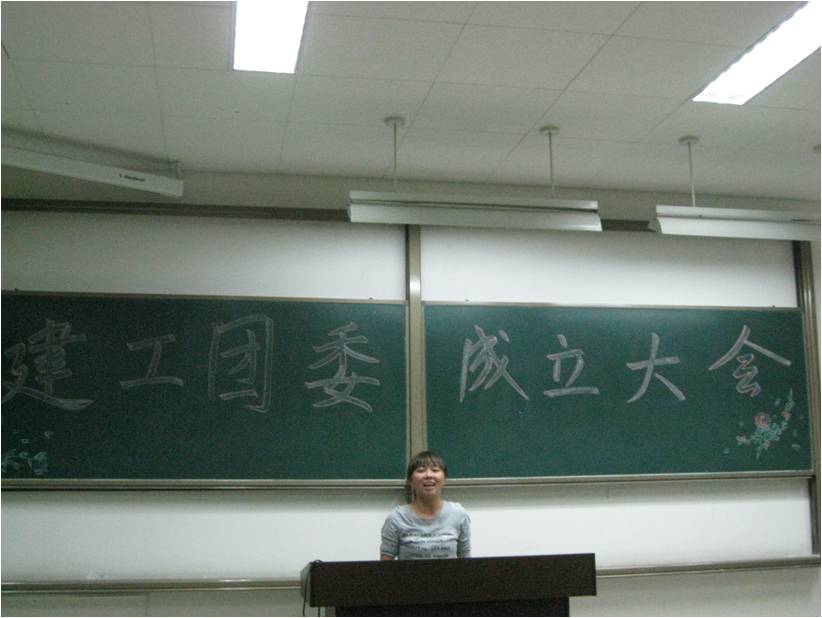 建工团委 成立大会